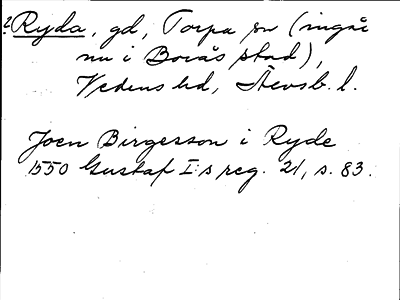 2 Ryda, gd, Torpa sn (ingår
nu i Borås stad),
Vedens hd, Älvsb. l.
Joen Birgersson i Ryde
1550 Gustaf I:s reg. 21, s. 83.